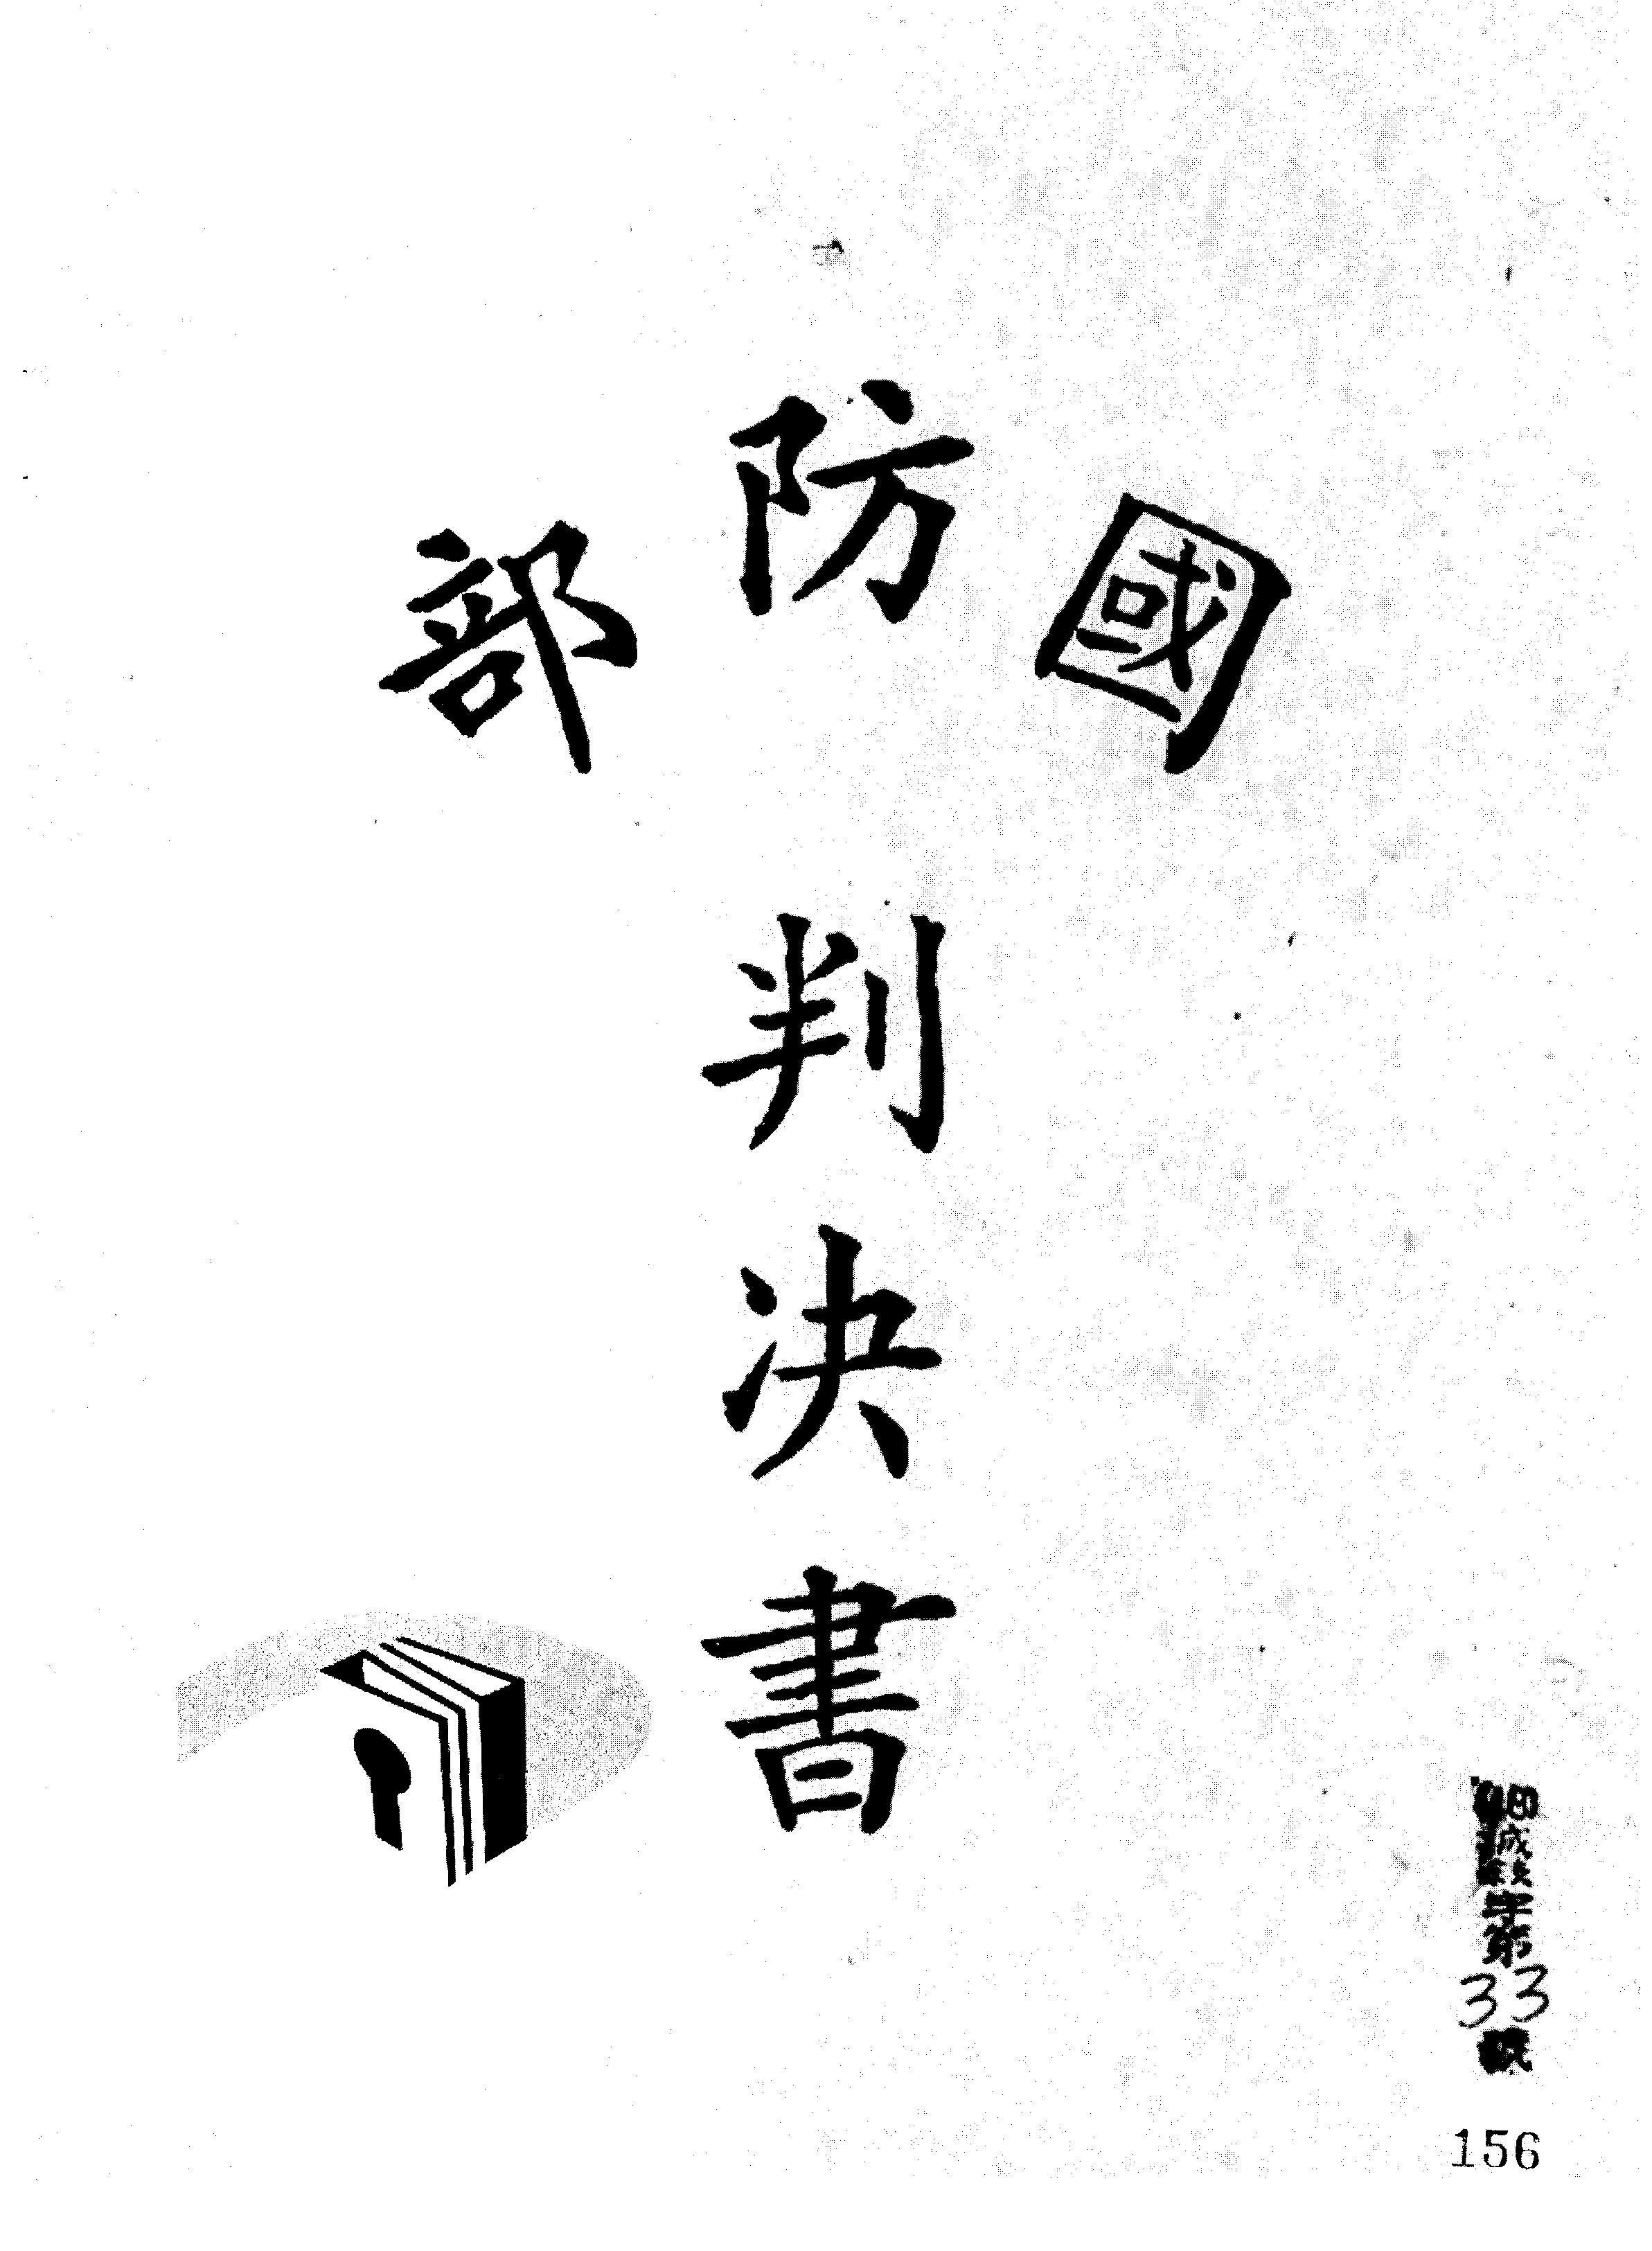 國防部
判决書
字第
33
號
156